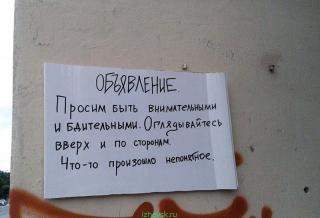 ОБЪЯВЛЕНИЕ
Просим быть внимательными
и бдительными. Оглядывайтесь
вверх и по сторонам.
Что-то произошло непонятное.
izhevsk.ru